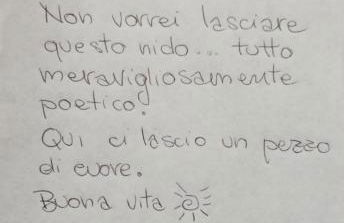 Non vorrei lasciare
questo nido... tutto
meravigliosamente
poetico!
Qui ci lascio un pezzo
di cuore.
Buona vita